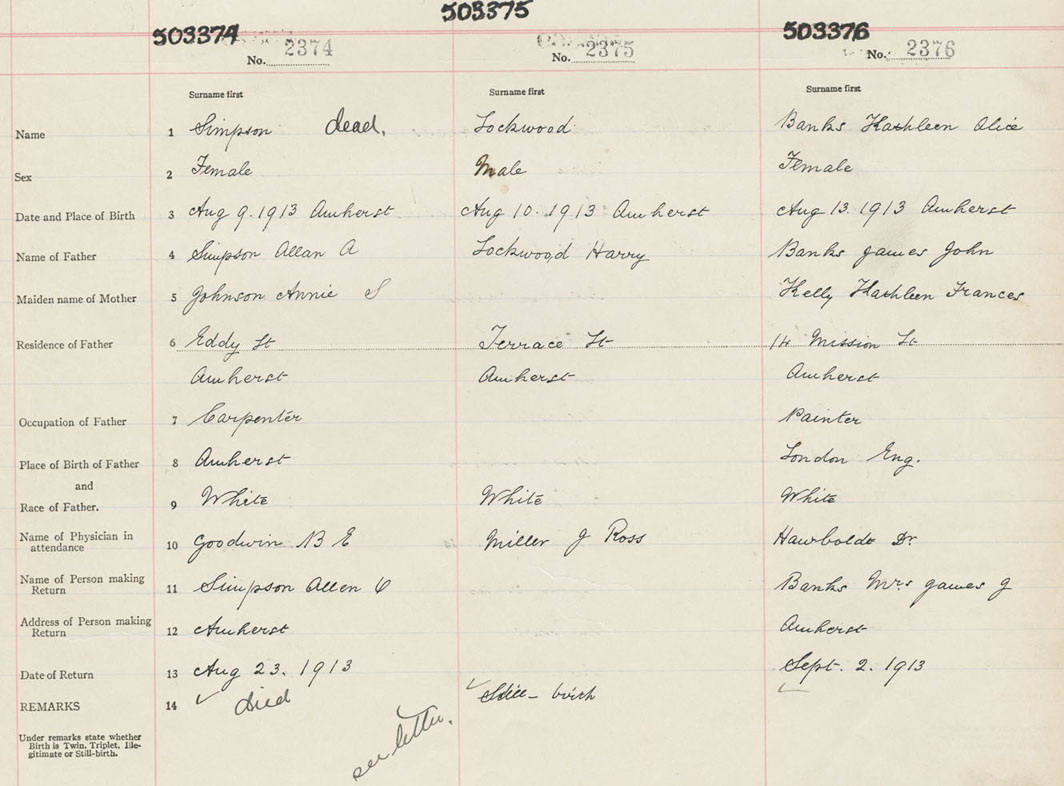 503374 503375 503376
No. 2374 No. 2375 No. 2376
Surname first Surname first Surname first
Name 1 Simpson dead. Lockwood Banks Kathleen Alice
Sex 2 Female Male Female
Date and Place of Birth 3 Aug 9. 1913 Amherst Aug 10. 1913 Amherst Aug 13. 1913 Amherst
Name of Father 4 Simpson Allan A Lockwood Harry Banks James John
Maiden name of Mother 5 Johnson Annie S Kelly Kathleen Frances
Residence of Father 6 Eddy St Terrace St 14 Mission St
Amherst Amherst Amherst
Occupation of Father 7 Carpenter Painter
Place of Birth of Father 8 Amherst London Eng.
and
Race of Father. 9 White White White
Name of Physician in
attendance 10 Goodwin B E Miller J Ross Hawboldt Dr
Name of Person making
Return 11 Simpson Allen Banks Mrs James J
Address of Person making
Return 12 Amherst Amherst
Date of Return 13 Aug 23. 1913 Sept. 2. 1913
REMARKS 14 died Still-birth
see letter.
Under remarks state whether
Birth is Twin, Triplet, Ille-
gitimate or Still-birth.